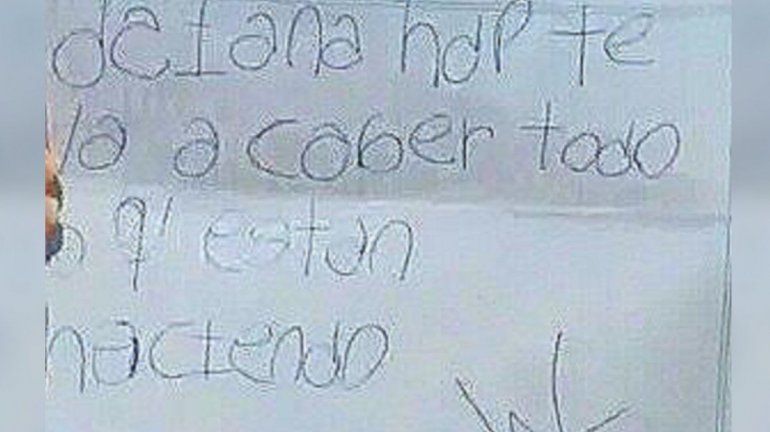 deiana hdp te
va a caber todo
o q' estan
haciendo